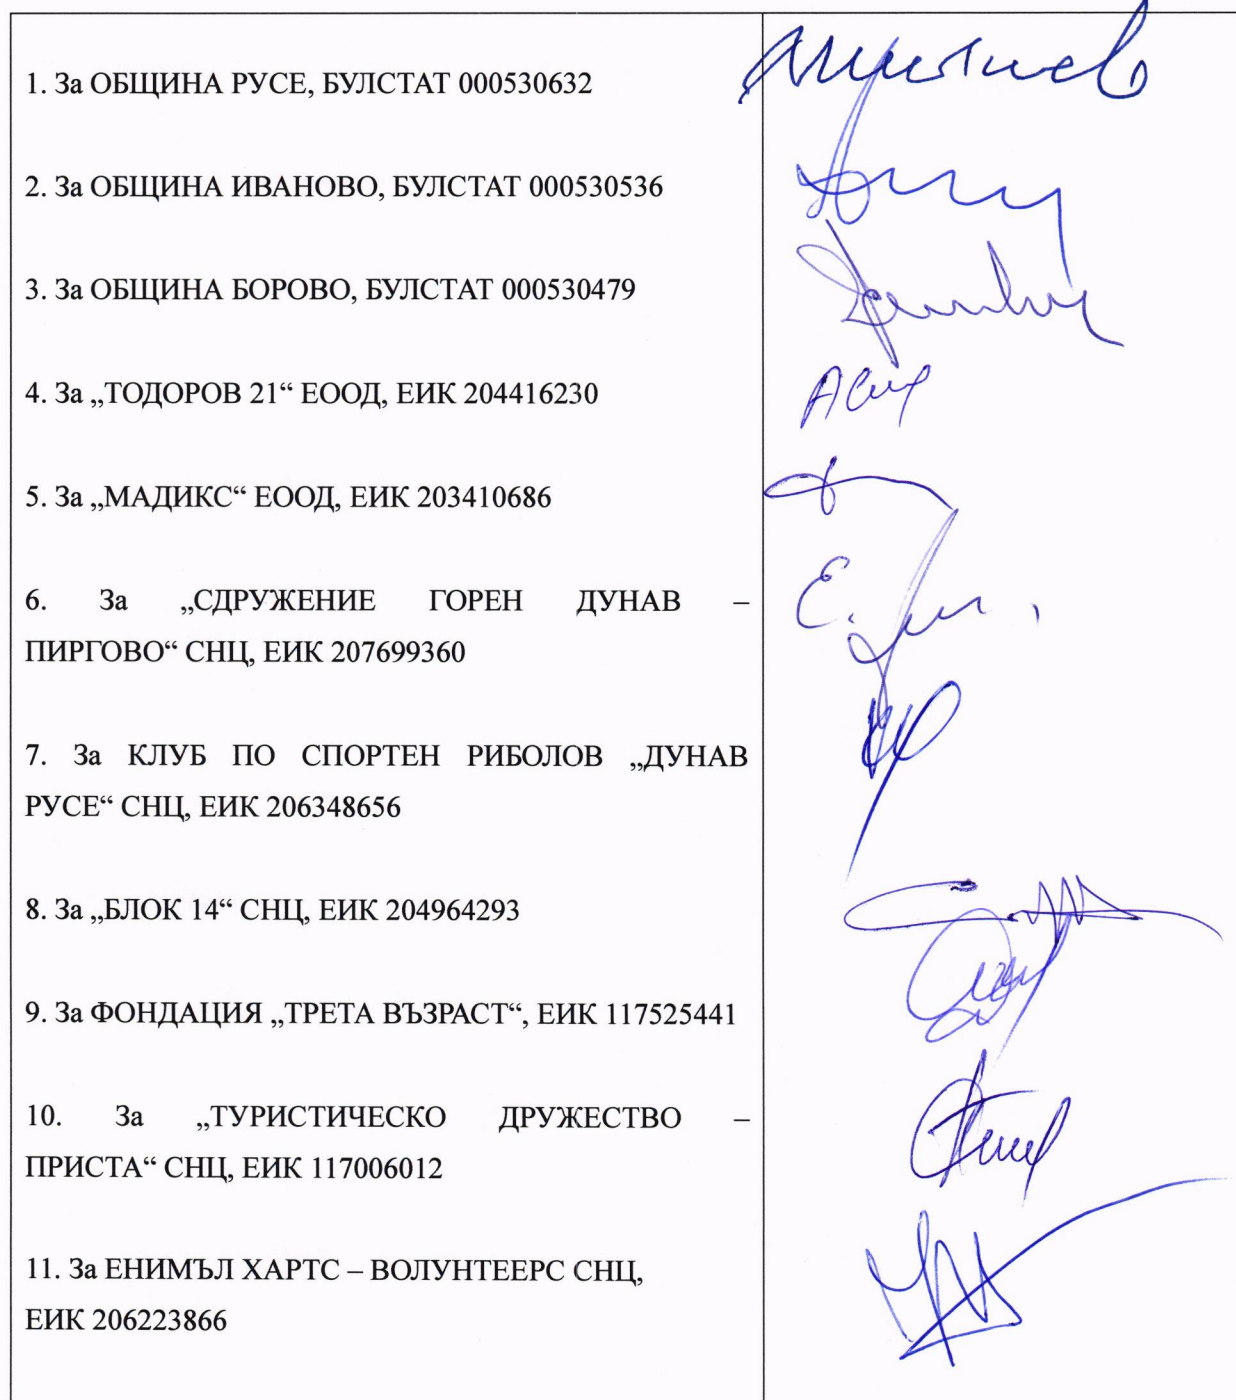 1. За ОБЩИНА РУСЕ, БУЛСТАТ 000530632
2. За ОБЩИНА ИВАНОВО, БУЛСТАТ 000530536
3. За ОБЩИНА БОРОВО, БУЛСТАТ 000530479
4. За „ТОДОРОВ 21“ ЕООД, ЕИК 204416230
5. За „МАДИКС“ ЕООД, ЕИК 203410686
6. За „СДРУЖЕНИЕ ГОРЕН ДУНАВ –
ПИРГОВО“ СНЦ, ЕИК 207699360
7. За КЛУБ ПО СПОРТЕН РИБОЛОВ „ДУНАВ
РУСЕ“ СНЦ, ЕИК 206348656
8. За „БЛОК 14“ СНЦ, ЕИК 204964293
9. За ФОНДАЦИЯ „ТРЕТА ВЪЗРАСТ“, ЕИК 117525441
10. За „ТУРИСТИЧЕСКО ДРУЖЕСТВО –
ПРИСТА“ СНЦ, ЕИК 117006012
11. За ЕНИМЪЛ ХАРТС – ВОЛУНТЕЕРС СНЦ,
ЕИК 206223866